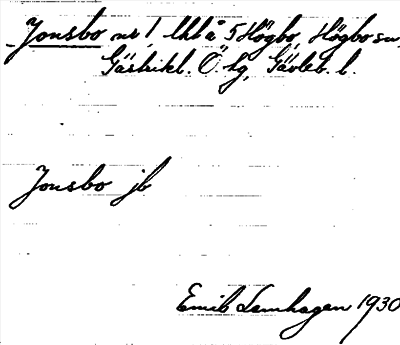 Jonsbo nr 1 lht å 5 Högbo, Högbo sn,
Gästrikl. Ö. hg, Gävleb. l.
Jonsbo jb
Emil Lamhagen 1930